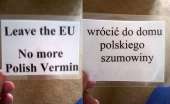 Leave the EU
No more
Polish Vermin
wrócić do domu
polskiego
szumowiny